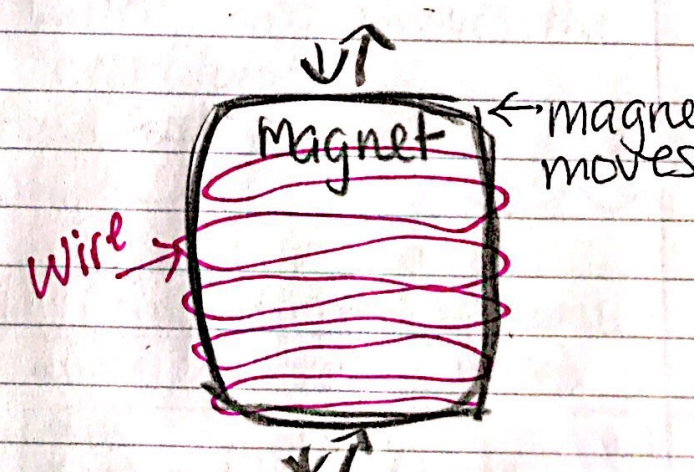 magnet
←magne
moves
wire